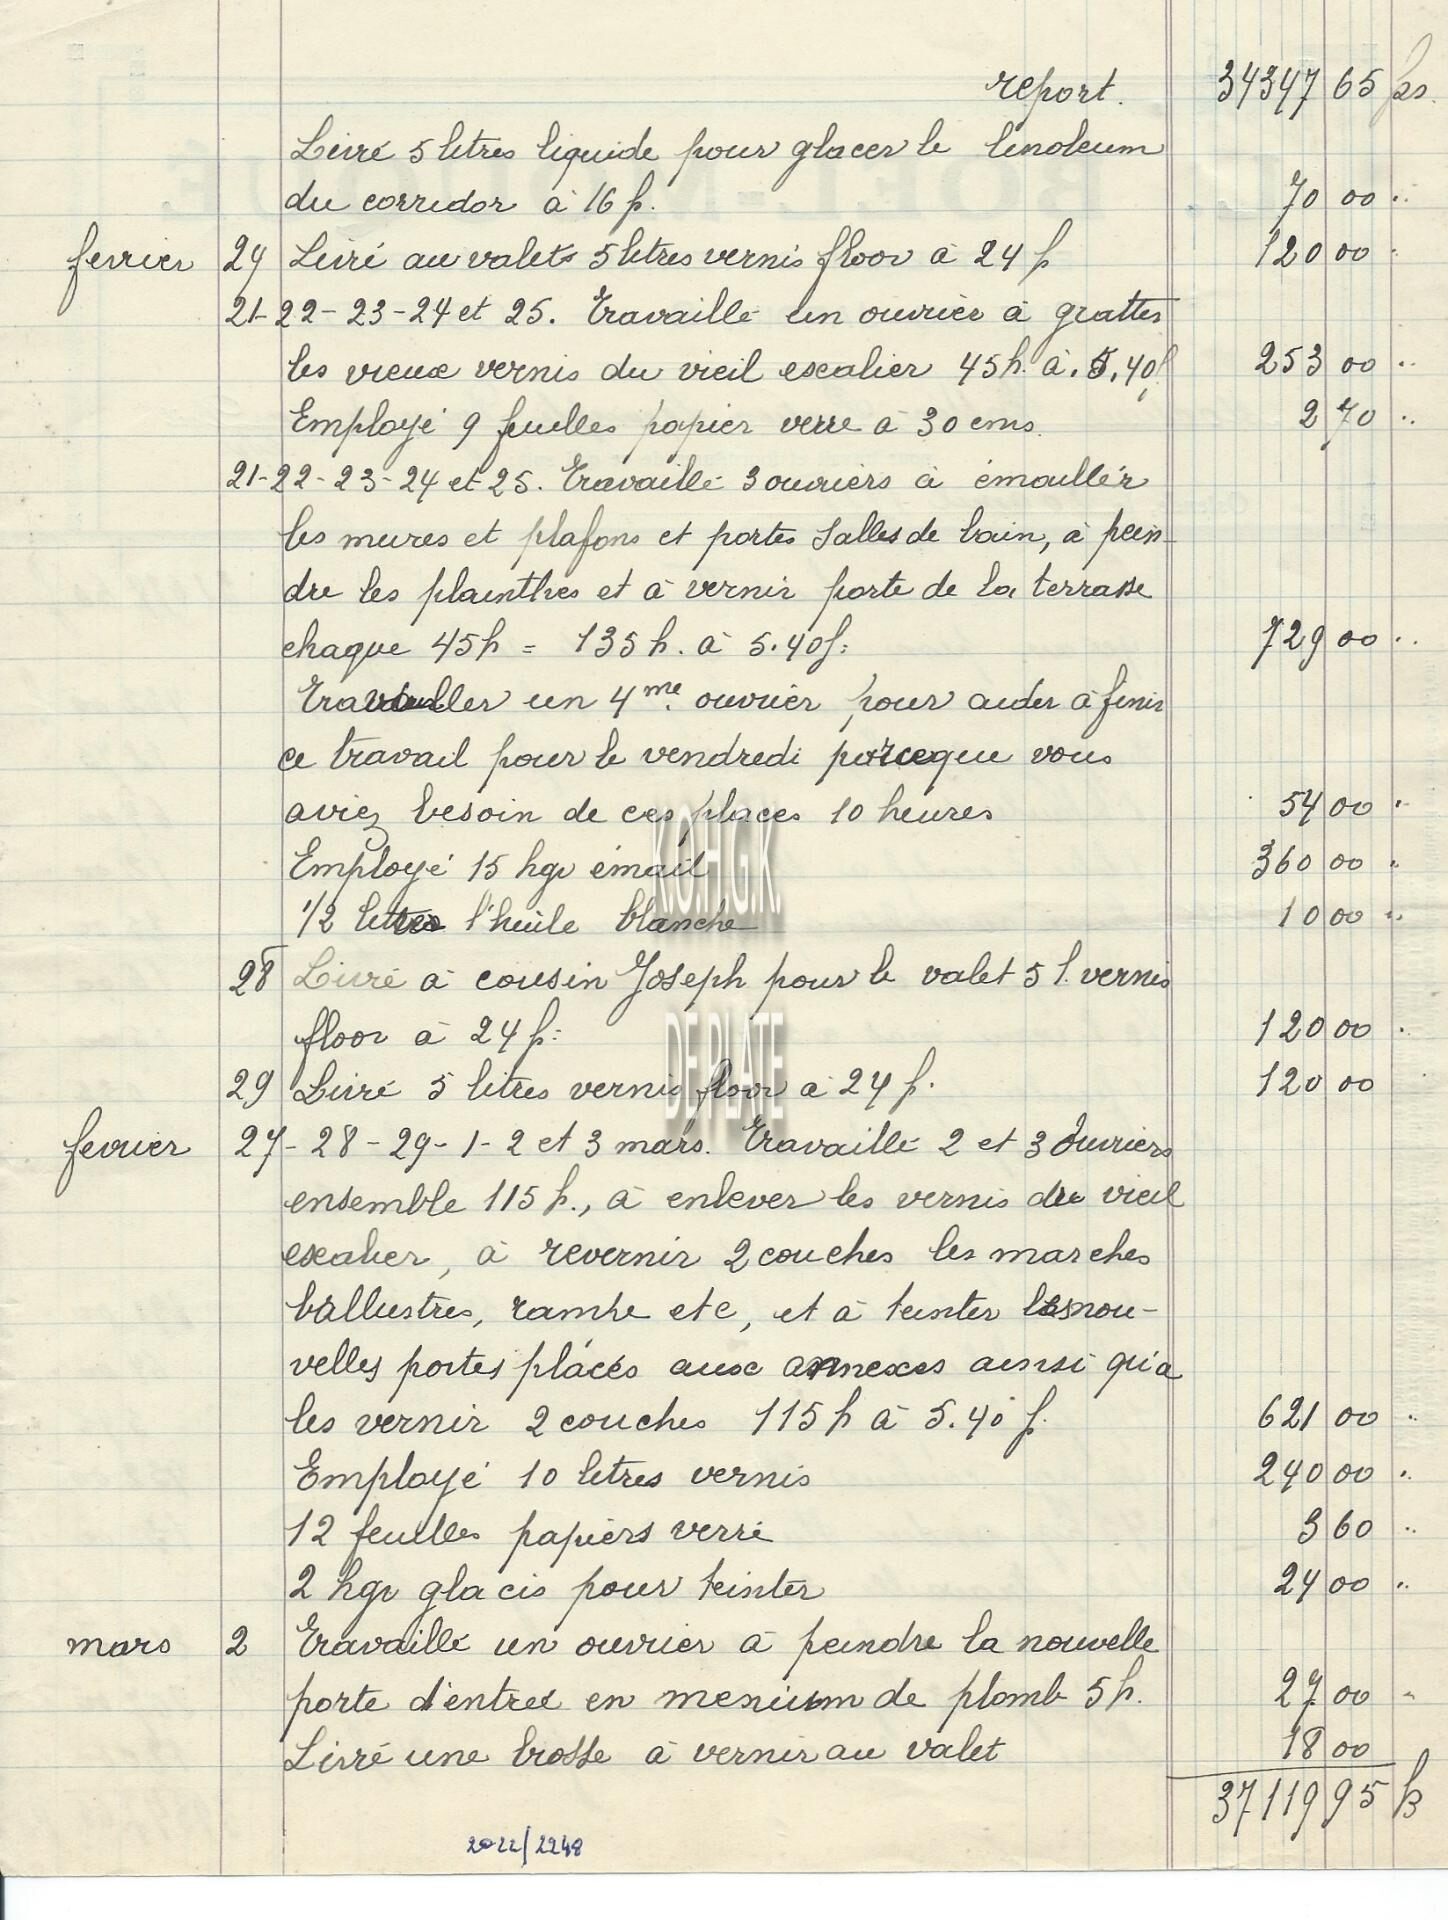 report. 34347 65 frs.
Livré 5 litres liquide pour glacer le linoleum
du corridor à 16 f. 70 00 "
fevrier 24 Livré au valet 5 litres vernis floor à 24 f 120 00 "
21-22-23-24 et 25. Travaillé un ouvrier à gratter
les vieux vernis du vieil escalier 45 h. à 5.40 f 253 00 "
Employé 9 feuilles papier verre à 30 cms. 2 70 "
21-22-23-24 et 25. Travaillé 3 ouvriers à émailler
les mures et plafons et portes salles de bain, à pein-
dre les plainthes et à vernir porte de la terrasse
chaque 45 h = 135 h. à 5.40 f. 729 00 "
Travailler un 4me. ouvrier pour aider à finir
ce travail pour le vendredi parceque vous
aviez besoin de ces places 10 heures 54 00 "
Employé 15 kgr émail 360 00 "
1/2 litre l'huile blanche 10 00 "
28 Livré à cousin Joseph pour le valet 5 l. vernis
floor à 24 f. 120 00 "
29 Livré 5 litres vernis floor à 24 f. 120 00
fevrier 27-28-29-1-2 et 3 mars. Travaillé 2 et 3 ouvriers
ensemble 115 h., à enlever les vernis du vieil
escalier, à revernir 2 couches les marches
ballustres, rampe etc, et à teinter les nou-
velles portes placés aux annexes ainsi qu'a
les vernir 2 couches 115 h à 5.40 f. 621 00 "
Employé 10 litres vernis 240 00 "
12 feuilles papiers verré 3 60 "
2 kgr glacis pour teinter 24 00 "
mars 2 Travaillé un ouvrier à peindre la nouvelle
porte d'entreé en menium de plomb 5 h. 27 00 "
Livré une brosse à vernir au valet 18 00
37119 95 fr
K.O.H.G.K.
DE PLATE
2022/2248